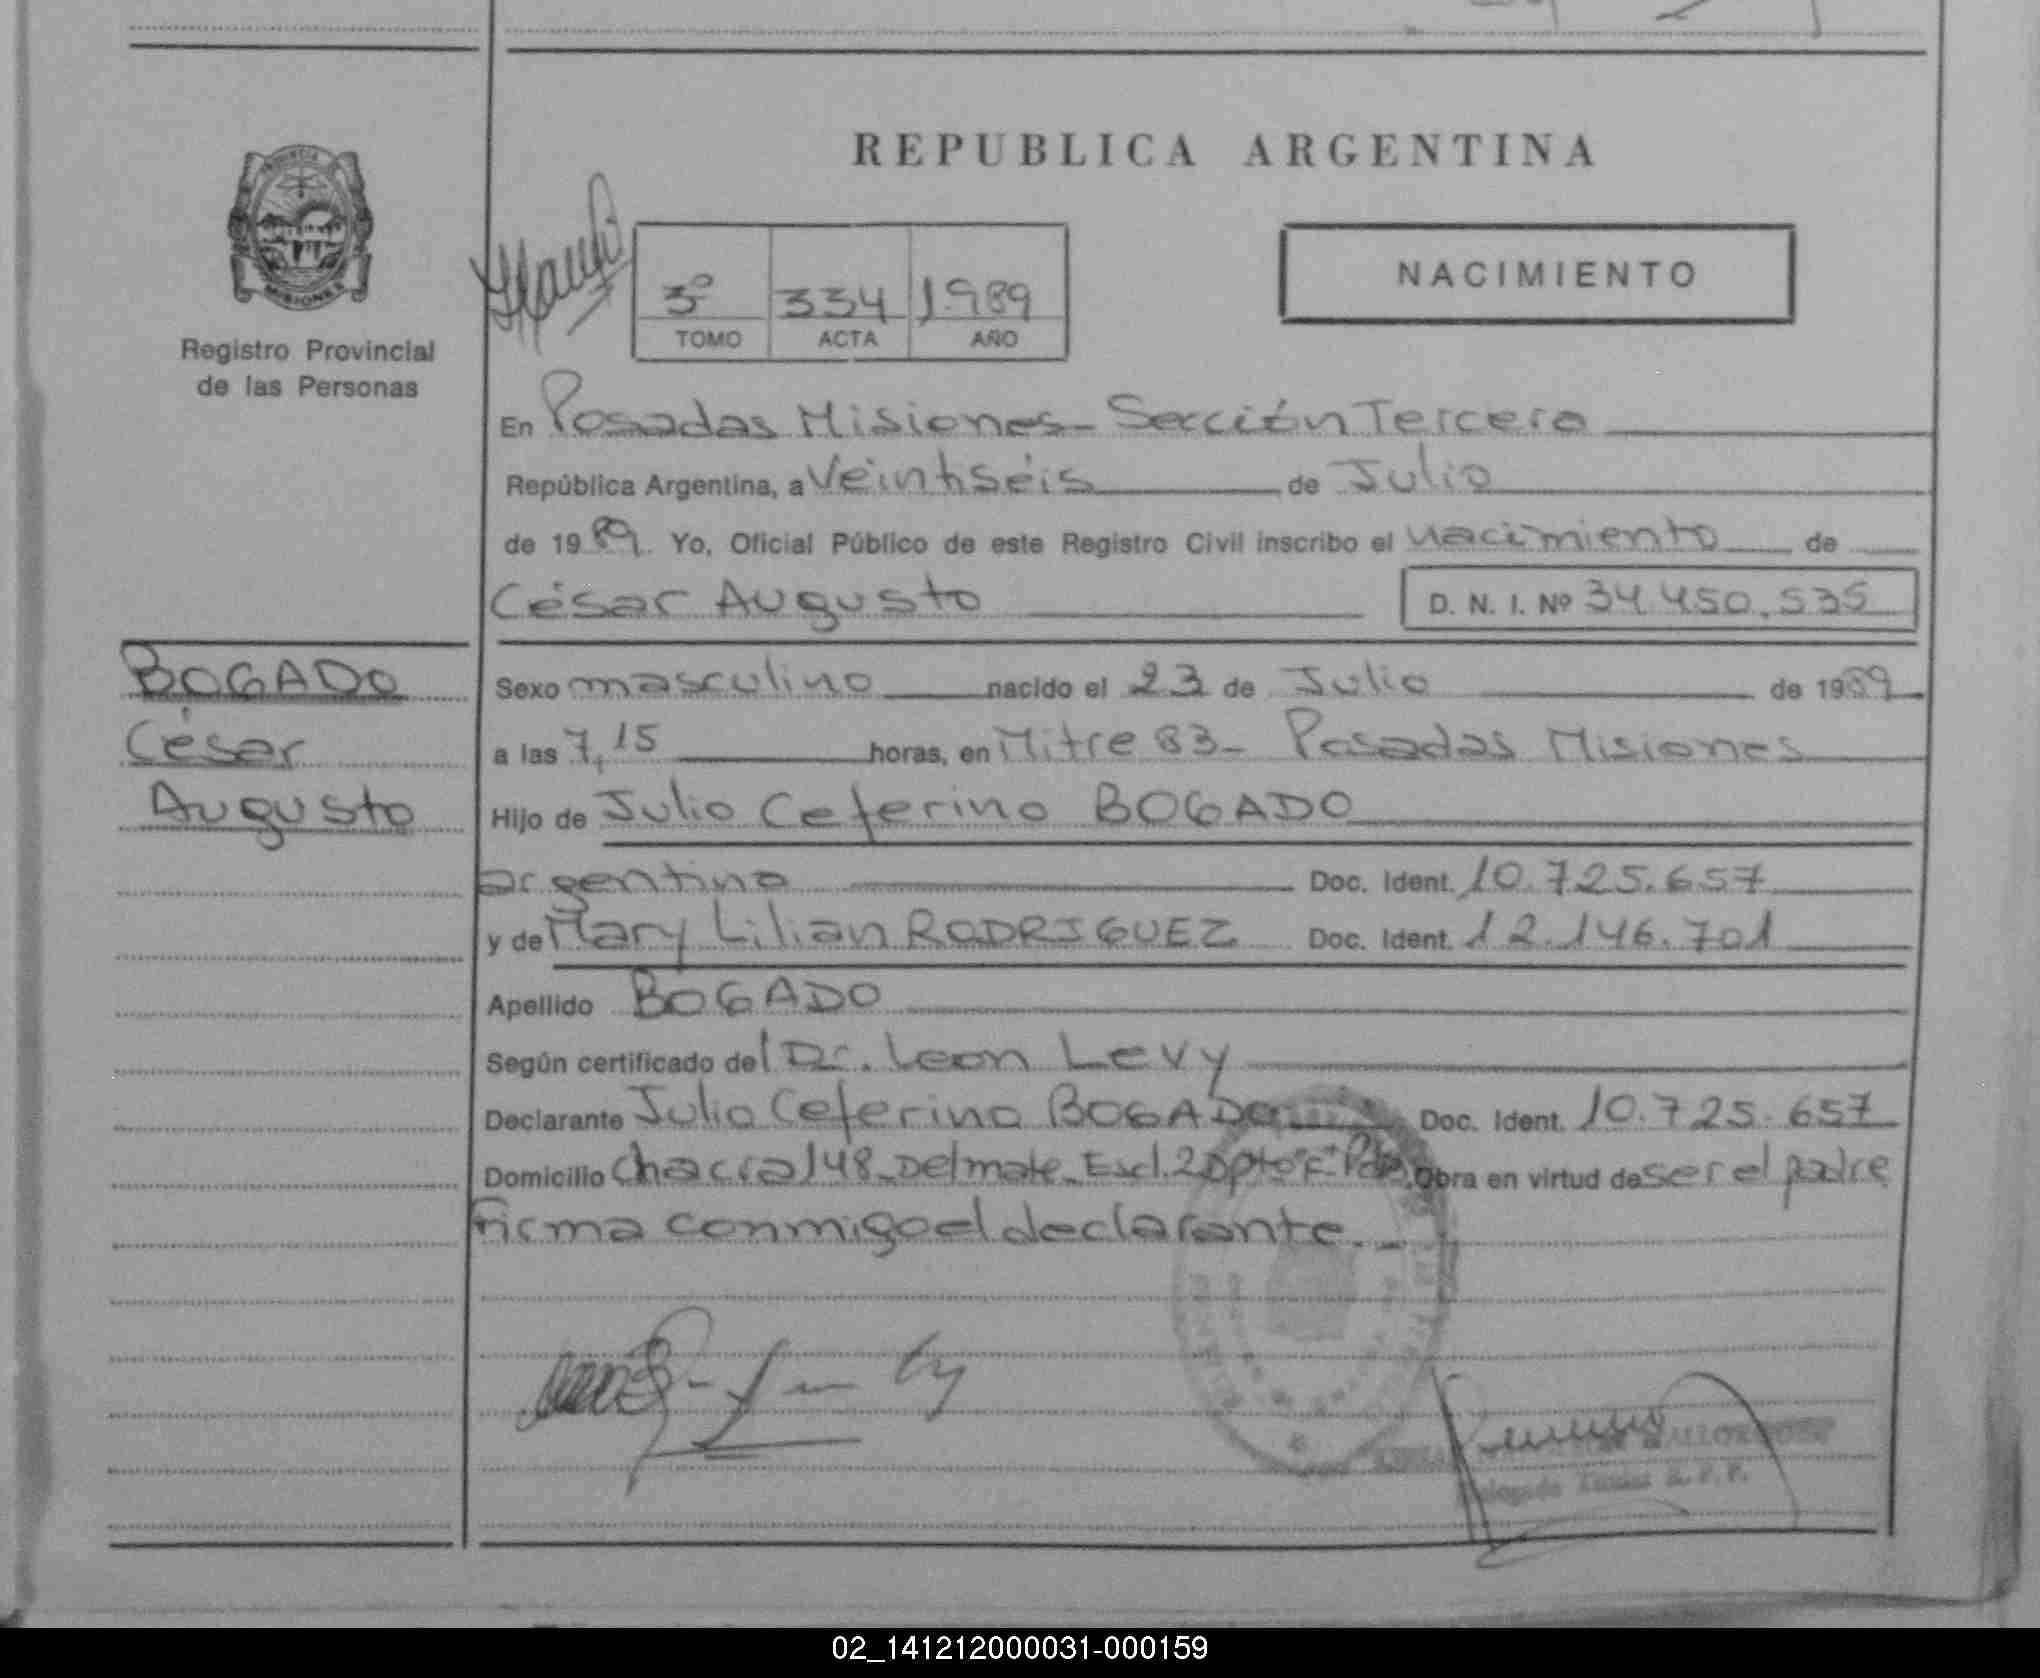 REPUBLICA ARGENTINA
PROVINCIA
MISIONES
Registro Provincial
de las Personas
3º 334 1989
TOMO ACTA AÑO
NACIMIENTO
En Posadas Misiones - Sección Tercera
República Argentina, a Veintiséis de Julio
de 1989. Yo, Oficial Público de este Registro Civil inscribo el nacimiento de
César Augusto D. N. I. Nº 34.450.535
BOGADO
César
Augusto
Sexo masculino nacido el 23 de Julio de 1989
a las 7,15 horas, en Mitre 83- Posadas Misiones
Hijo de Julio Ceferino BOGADO
argentino Doc. Ident. 10.725.657
y de Mary Lilian RODRIGUEZ Doc. Ident. 12.146.701
Apellido BOGADO
Según certificado del Dr. Leon Levy
Declarante Julio Ceferino BOGADO Doc. Ident. 10.725.657
Domicilio Chacra 148-Delmate-Escl.2 Dpto"F" Pdas. Obra en virtud de ser el padre
firma conmigo el declarante.-
02_141212000031-000159